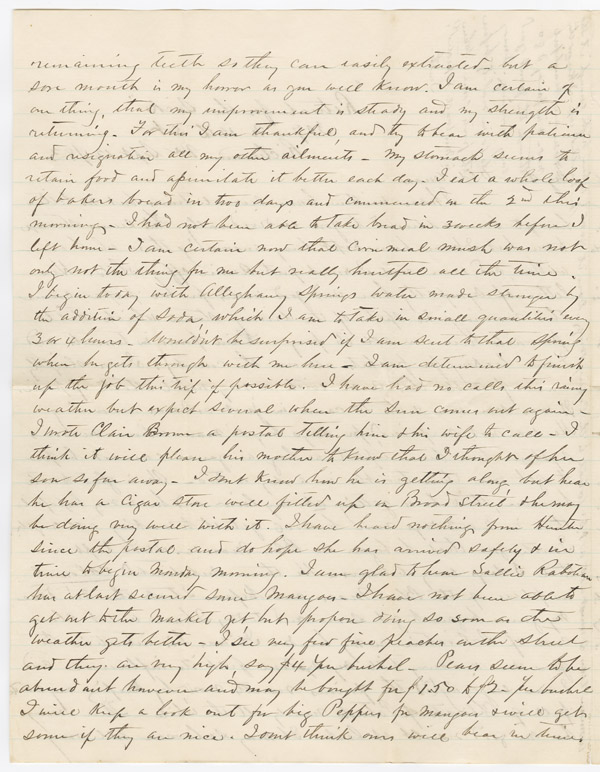 remaining teeth so they can easily extracted – but a
sore mouth is my horror as you well know. I am certain of
one thing, that my improvement is steady and my strength is
returning – For this I am thankful, and try to bear with patience
and resignation all my other ailments – My stomach seems to
retain food and assimilate it better each day – I eat a whole loaf
of bakers bread in two days and commenced on the 2nd this
morning – I had not been able to take bread in 3 weeks before I
left home – I am certain now that Corn meal mush was not
only not the thing for me but really hurtful all the time.
I begin today with Alleghany Springs water made stronger by
the addition of Soda, which I am to take in small quantities every
3 or 4 hours – Wouldn't be surprised if I am sent to that Spring
when he gets through with me here – I am determined to finish
up the job this trip if possible. I have had no calls this rainy
weather but expect several when the sun comes out again –
I wrote Clair Brown a postal telling him & his wife to call – I
think it will please his mother to know that I thought of her
son so far away – I dont know how he is getting along but hear
he has a Cigar Store well fitted up on Broad Street & he may
be doing very well with it. I have heard nothing from
since the postal and do hope she has arrived safely & in
time to begin Monday morning. I am glad to hear Sallie
has at last secured some Mangoes – I have not been able to
get out to the Market yet but propose doing so soon as the
weather gets better – I see very few fine peaches on the street
and they are very high say $4 per bushel – Pears seem to be
abundant however and may be bought for $1.50 to $2 – per bushel
I will keep a look out for big Peppers for mangoes & will get
some if they are nice. I dont think ours will bear in time